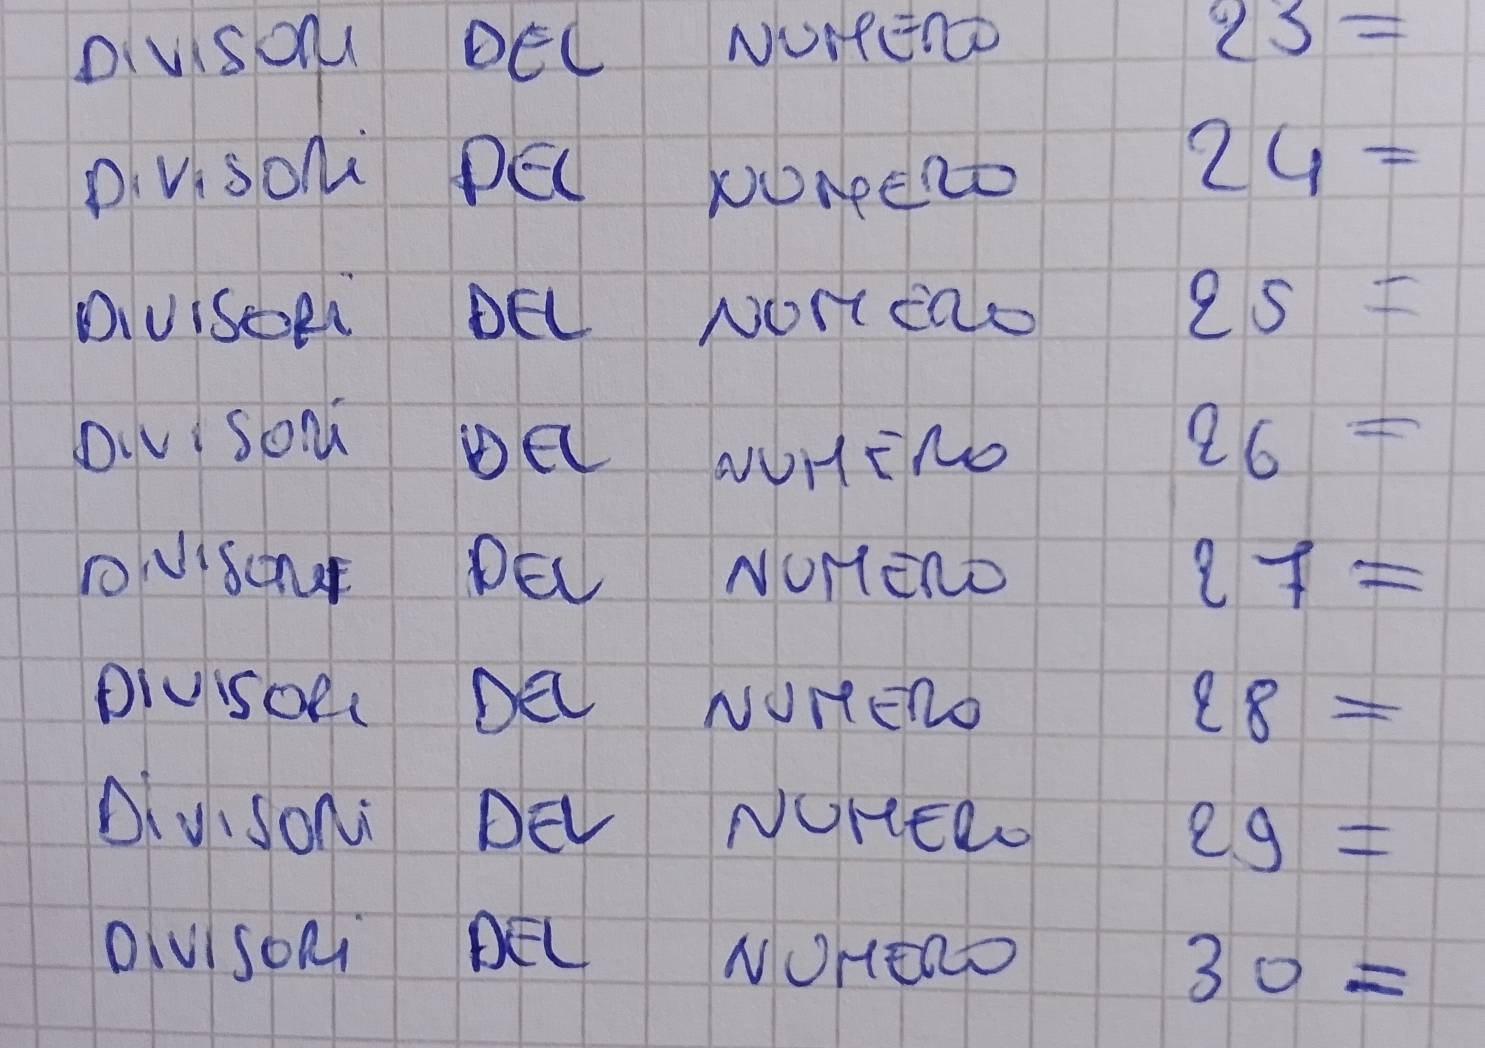 DIVISORI DEL NUMERO 23 =
DIVISORI DEL NUMERO 24 =
DIVISORI DEL NUMERO 25 =
DIVISORI DEL NUMERO 26 =
DIVISORI DEL NUMERO 27 =
DIVISORI DEL NUMERO 28 =
DIVISORI DEL NUMERO 29 =
DIVISORI DEL NUMERO 30 =